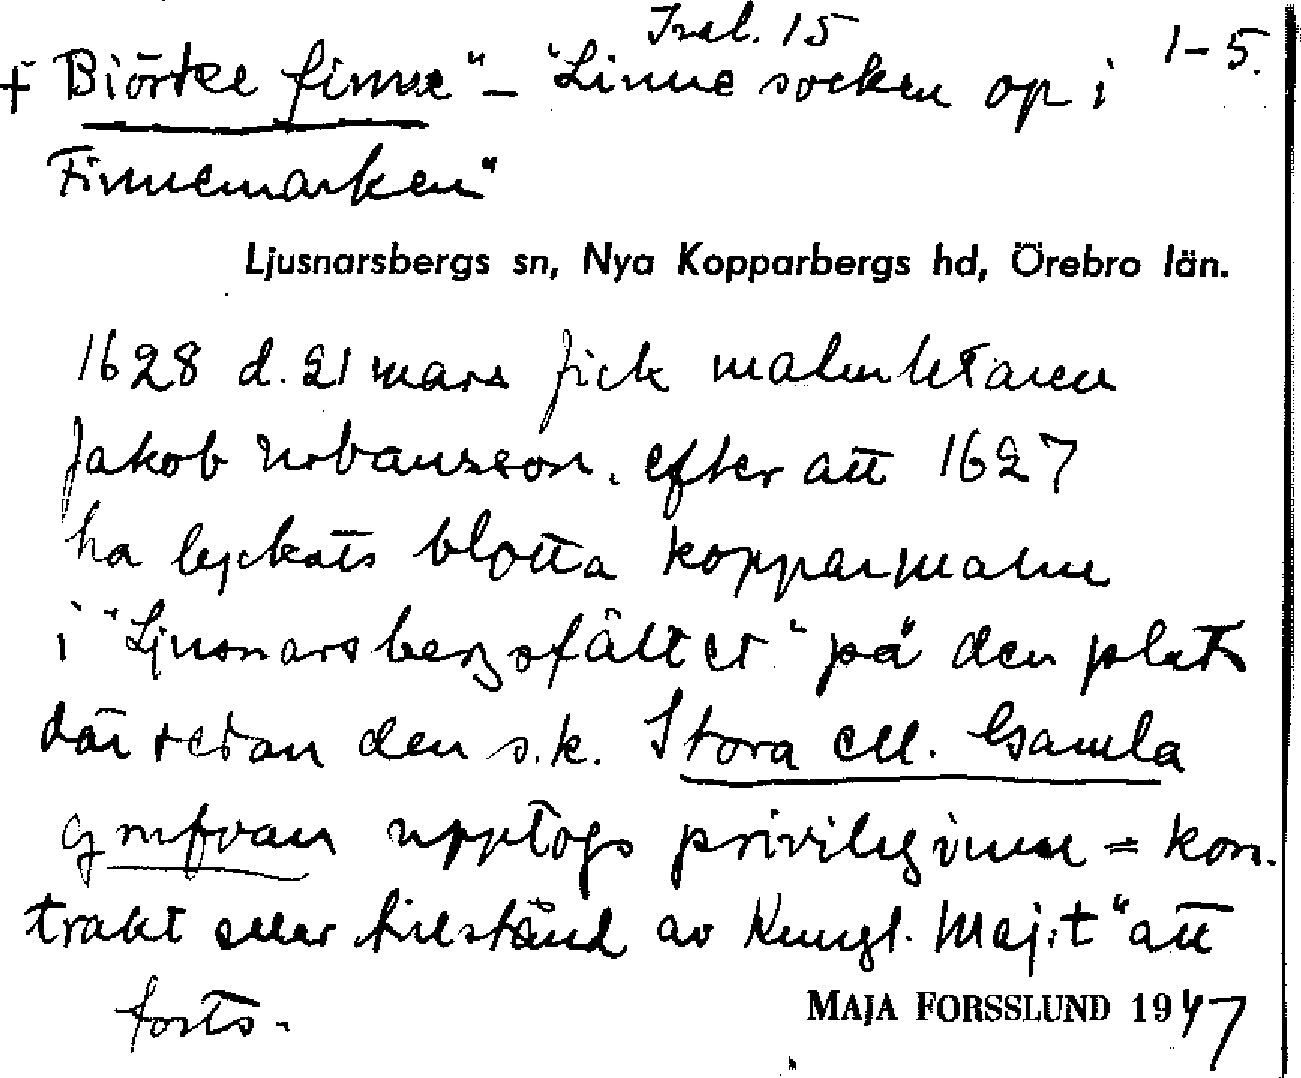 Insl. 15
1-5.
+ "Biörkee finne" - "Linne socken op i
Finnemarken"
Ljusnarsbergs sn, Nya Kopparbergs hd, Örebro län.
1628 d. 21 mars fick malmletaren
Jakob Urbansson, efter att 1627
ha lyckats blotta kopparmalm
i "Ljusnarsbergsfältet" på den plats
där sedan den s.k. Stora ell. Gamla
grufvan upptogs privilegium = kon-
trakt eller tillstånd av Kungl. Maj:t "att
forts.
MAJA FORSSLUND 1947